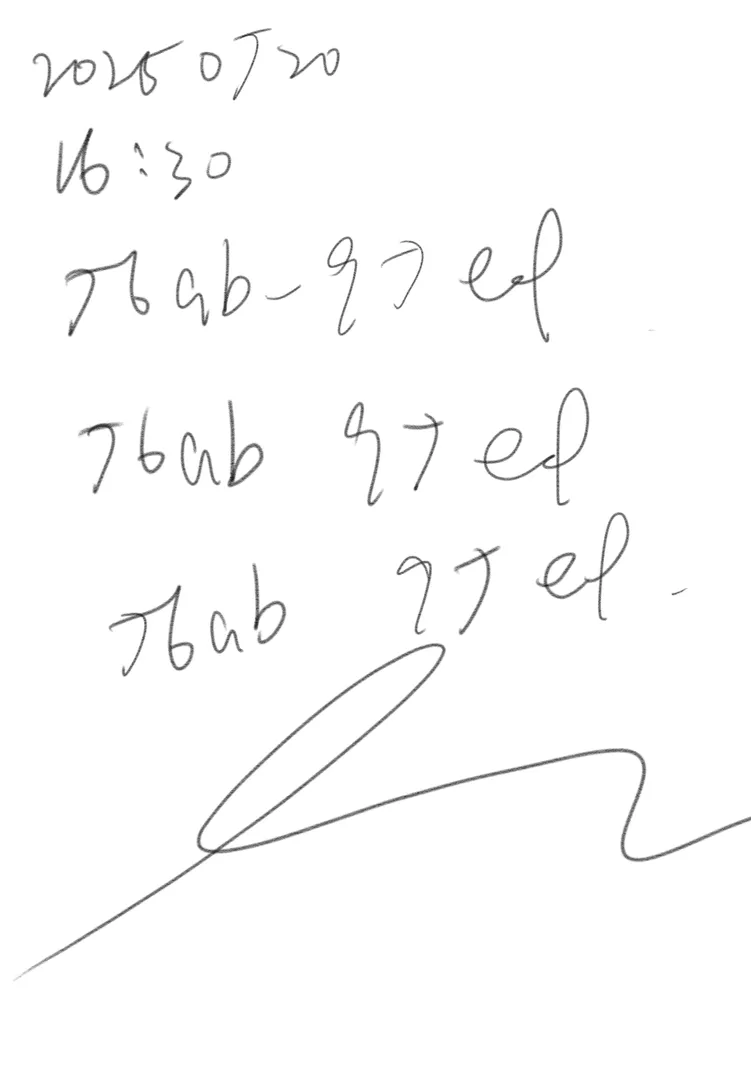 20250720
16:30
76ab-97ed
76ab 97ed
76ab 97ed.